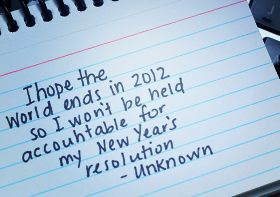 I hope the
World ends in 2012
so I won't be held
accountable for
my New Year's
resolution
- Unknown